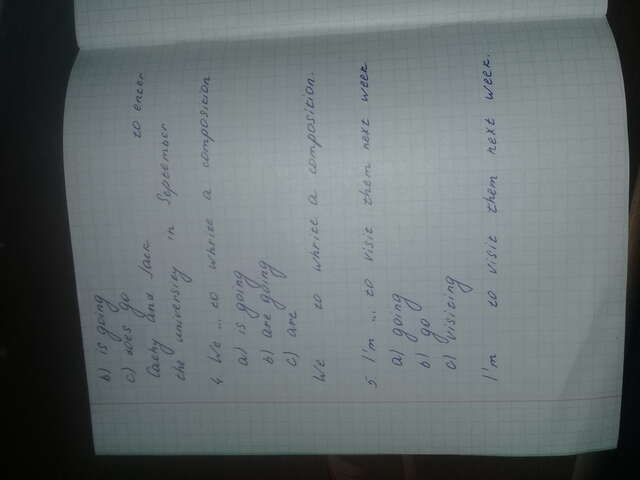 b) is going
c) goes go
Cathy and Jack to enter
the university in September
4 We ... to whrite a composition
a) is going
b) are going
c) are
We to whrite a composition.
5 I'm ... to visit them next week
a) going
b) go
c) visiting
I'm to visit them next week.